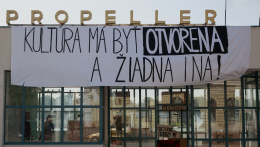 PROPELLER
KULTÚRA MÁ BYŤ OTVORENÁ
A ŽIADNA INÁ!